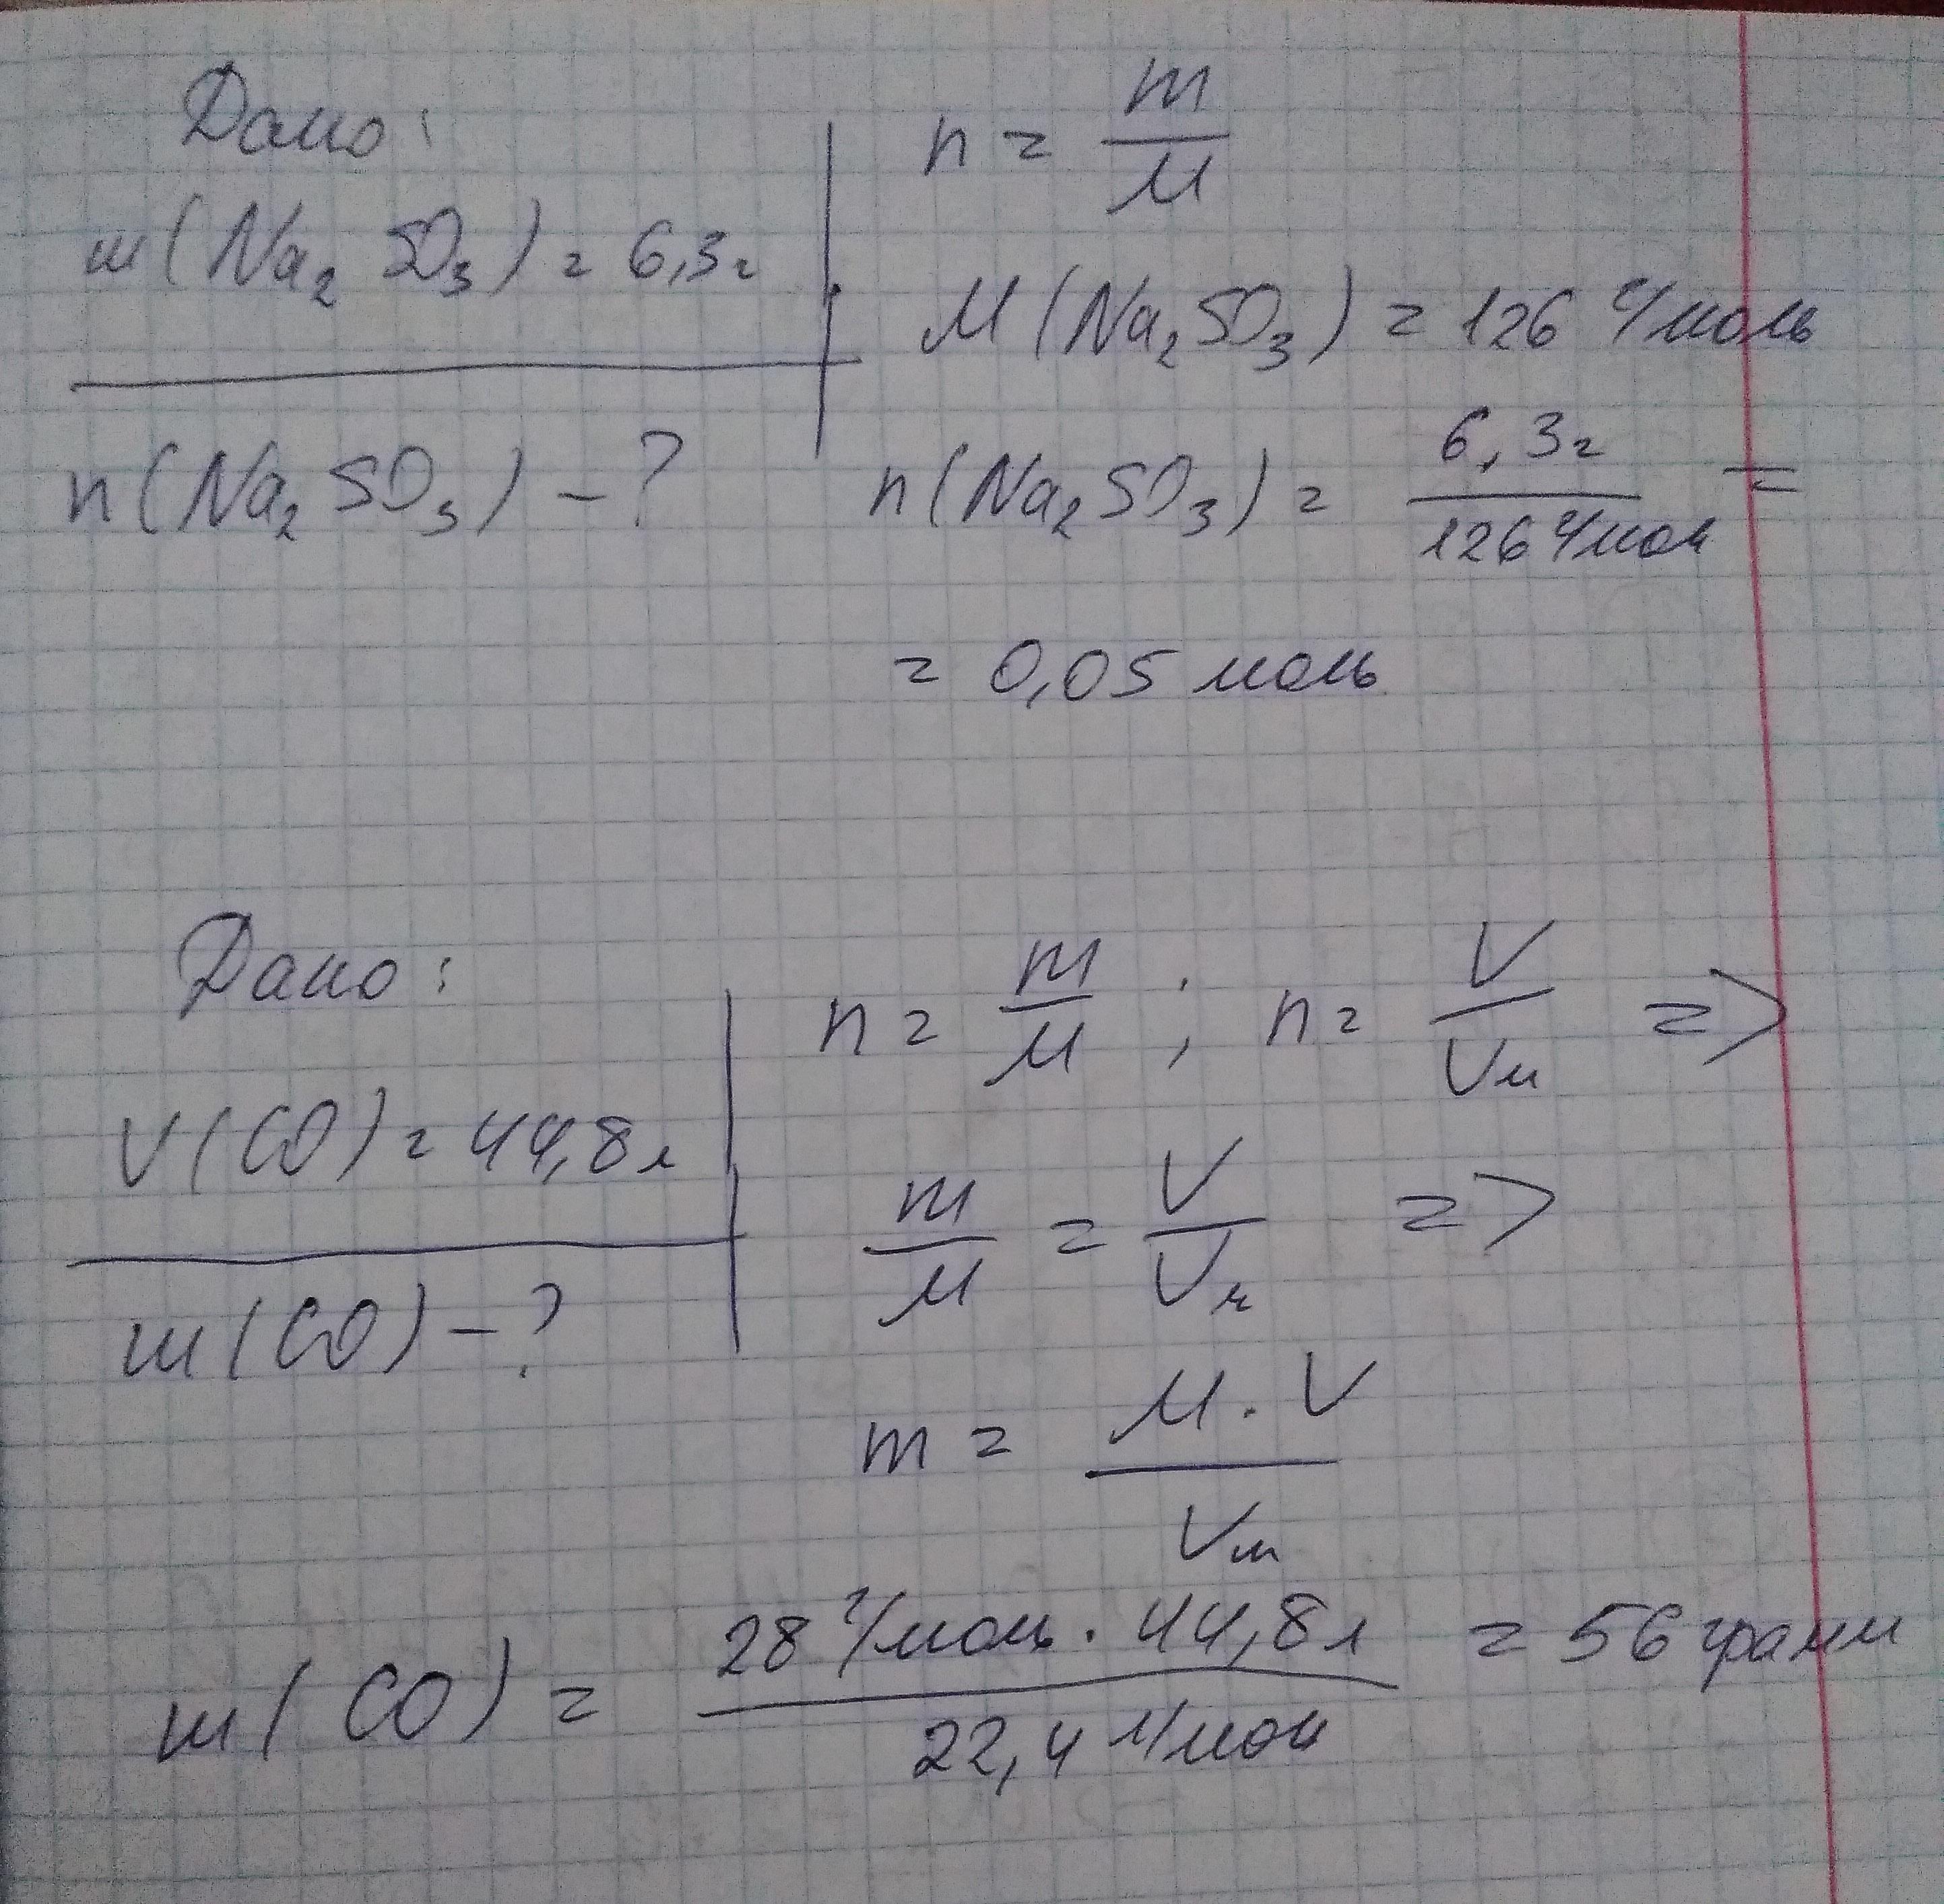 Дано:
m(Na₂SO₃) = 6,3г
n(Na₂SO₃) - ?
n = m/M
M(Na₂SO₃) = 126 г/моль
n(Na₂SO₃) = 6,3г/126 г/мол =
= 0,05 моль
Дано:
V(CO) = 44,8л
m(CO) - ?
n = m/M ; n = V/Vм =>
m/M = V/Vм =>
m = M·V/Vм
m(CO) = 28 г/моль · 44,8л/22,4 л/мол = 56 грамм